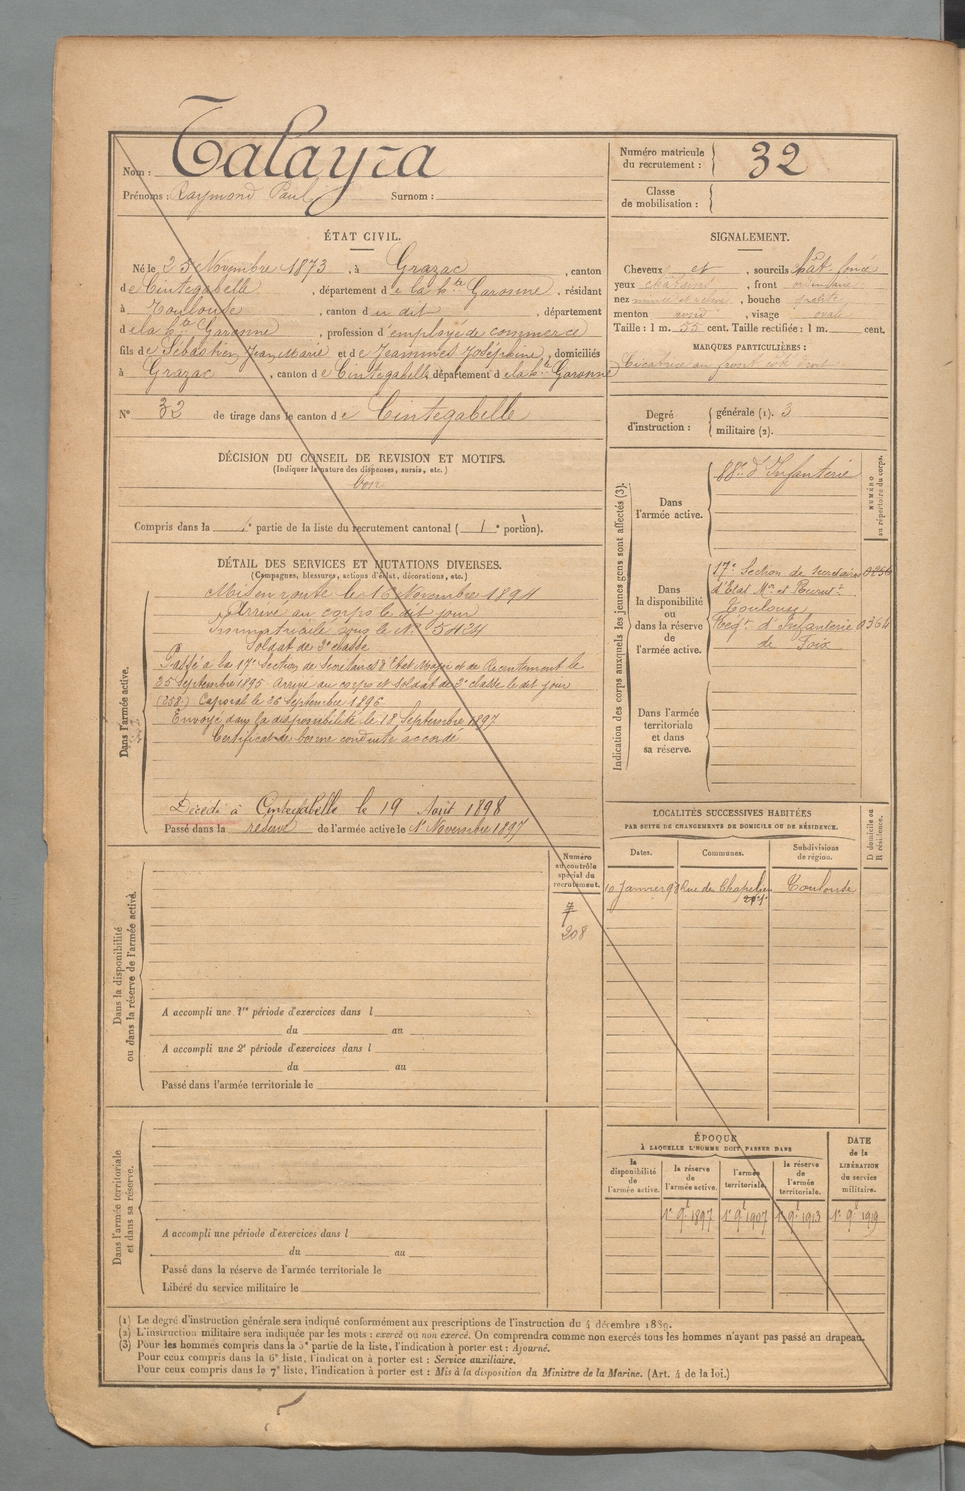 Nom : Talayra
Prénoms : Raymond Paul Surnom :
Numéro matricule du recrutement : 32
Classe de mobilisation :
ÉTAT CIVIL.
Né le 25 Novembre 1873, à Grazac, canton
de Cintegabelle, département de la hte Garonne, résidant
à Toulouse, canton du dit, département
de la hte Garonne, profession d'employé de commerce
fils de Sébastien Jean Marie et de Jeammes Joséphine, domiciliés
à Grazac, canton de Cintegabelle, département de la hte Garonne
N° 32 de tirage dans le canton de Cintegabelle
SIGNALEMENT.
Cheveux et, sourcils chât. foncé
yeux châtains, front ordinaire
nez, bouche petite
menton rond, visage ovale
Taille : 1 m. 55 cent. Taille rectifiée : 1 m. cent.
MARQUES PARTICULIÈRES :
Cicatrice au front côté droit
Degré d'instruction : générale (1). 3
militaire (2).
DÉCISION DU CONSEIL DE REVISION ET MOTIFS.
(Indiquer la nature des dispenses, sursis, etc.)
bon
Compris dans la 1e partie de la liste du recrutement cantonal ( 1e portion).
DÉTAIL DES SERVICES ET MUTATIONS DIVERSES.
(Campagnes, blessures, actions d'éclat, décorations, etc.)
Dans l'armée active.
Mis en route le 16 Novembre 1894
Arrivé au corps le dit jour
Immatriculé sous le N° 5424
Soldat de 2e classe
Passé à la 17e Section de Secrétaires d'Etat Major et de Recrutement le
25 Septembre 1895 Arrivé au corps et Soldat de 2e classe le dit jour
(258.) Caporal le 26 Septembre 1896
Envoyé dans la disponibilité le 18 Septembre 1897
Certificat de bonne conduite accordé
Décédé à Cintegabelle le 19 Août 1898
Passé dans la réserve de l'armée active le 1er Novembre 1897
Indication des corps auxquels les jeunes gens sont affectés (3).
NUMÉRO au répertoire du corps.
Dans l'armée active.
88e d'Infanterie
Dans la disponibilité ou dans la réserve de l'armée active.
17e Section de Secrétaires
d'Etat Mor et Recrutt
Toulouse
Regt d'Infanterie 0364
de Foix
Dans l'armée territoriale et dans sa réserve.
LOCALITÉS SUCCESSIVES HABITÉES
PAR SUITE DE CHANGEMENTS DE DOMICILE OU DE RÉSIDENCE.
D domicile ou R résidence.
Dates. Communes. Subdivisions de région.
10 Janvier 98 Rue du Chapelier Toulouse
Numéro au contrôle spécial du recrutement.
208
Dans la disponibilité ou dans la réserve de l'armée active.
A accompli une 1re période d'exercices dans l
du au
A accompli une 2e période d'exercices dans l
du au
Passé dans l'armée territoriale le
Dans l'armée territoriale et dans sa réserve.
A accompli une période d'exercices dans l
du au
Passé dans la réserve de l'armée territoriale le
Libéré du service militaire le
ÉPOQUE
À LAQUELLE L'HOMME DOIT PASSER DANS
la disponibilité de l'armée active.
la réserve de l'armée active.
l'armée territoriale.
la réserve de l'armée territoriale.
DATE de la LIBÉRATION du service militaire.
1er 9bre 1897 1er 9bre 1907 1er 9bre 1913 1er 9bre 1919
(1) Le degré d'instruction générale sera indiqué conformément aux prescriptions de l'instruction du 4 décembre 1889.
(2) L'instruction militaire sera indiquée par les mots : exercé ou non exercé. On comprendra comme non exercés tous les hommes n'ayant pas passé au drapeau.
(3) Pour les hommes compris dans la 5e partie de la liste, l'indication à porter est : Ajourné.
Pour ceux compris dans la 6e liste, l'indication à porter est : Service auxiliaire.
Pour ceux compris dans la 7e liste, l'indication à porter est : Mis à la disposition du Ministre de la Marine. (Art. 4 de la loi.)